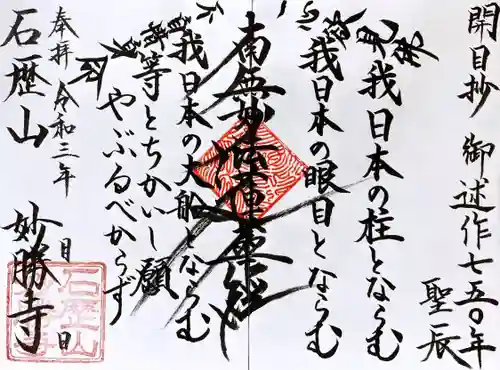 開目抄 御述作七五〇年
聖辰
我日本の柱とならむ
我日本の眼目とならむ
南無妙法蓮華経
我日本の大船とならむ
等とちかいし願
やぶるべからず
奉拝 令和三年 月 日
石歴山 妙勝寺
石歴山